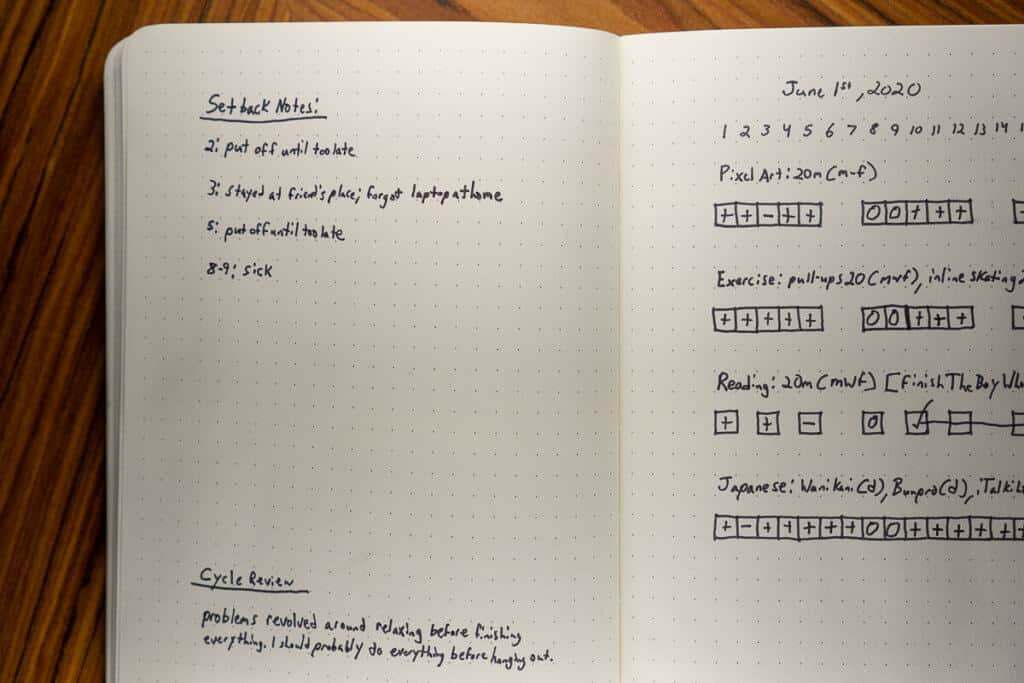 Setback Notes:
2: put off until too late
3: stayed at friend's place; forgot laptop at home
5: put off until too late
8-9: sick
Cycle Review
problems revolved around relaxing before finishing
everything. I should probably do everything before hanging out.
June 1st, 2020
1 2 3 4 5 6 7 8 9 10 11 12 13 14
Pixel Art: 20m (m-f)
+ + - + + 0 0 + + +
Exercise: pull-ups 20 (mwf), inline skating
+ + + + + 0 0 + + +
Reading: 20m (mwf) [Finish The Boy Who
+ + - 0 ✓ -
Japanese: WaniKani (d), Bunpro (d), iTalki
+ - + + + + + 0 0 + + + + + +